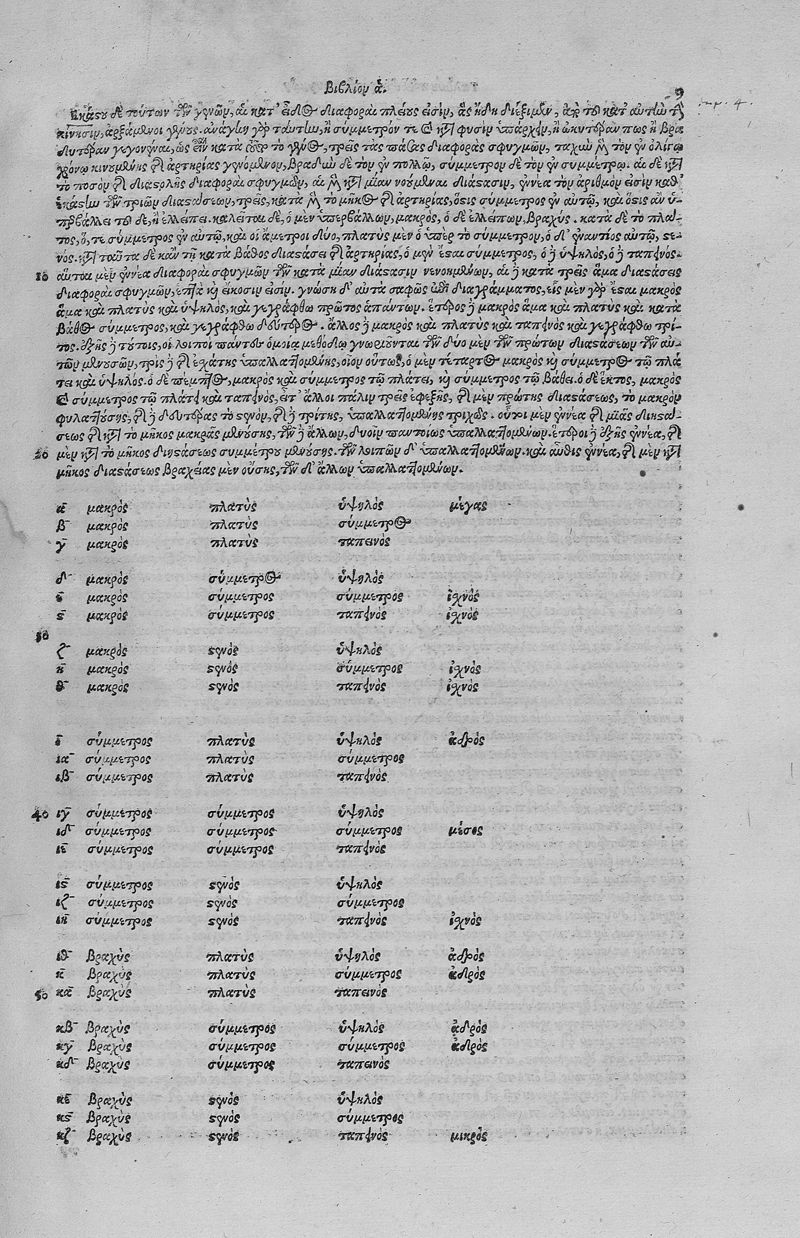 Βιβλίον ά. 9
ἑκάστου δὲ τούτων τῶν γενῶν, αἱ κατ' εἶδος διαφοραὶ πλείους εἰσὶν, ἃς ἤδη διέξιμεν, ἀπὸ τοῦ κατ' αὐτὴν τὴν
κίνησιν, ἀρξάμενοι γένους. ἀνάγκη γὰρ ταύτην, ἢ σύμμετρόν τε καὶ κατὰ φύσιν ὑπάρχειν, ἢ ὠκυτέραν πως ἢ βρα
δυτέραν γεγονέναι, ὡς εἶναι κατὰ τοῦτο τὸ γένος, τρεῖς τὰς πάσας διαφορὰς σφυγμῶν, ταχὺν μὲν τὸν ἐν ὀλίγῳ
χρόνῳ κινουμένης τῆς ἀρτηρίας γενόμενον, βραδὺν δὲ τὸν ἐν πολλῷ, σύμμετρον δὲ τὸν ἐν συμμέτρῳ. αἱ δὲ κατὰ
τὸ ποσὸν τῆς διαστολῆς διαφοραὶ σφυγμῶν, αἱ μὲν κατὰ μίαν νούμεναι διάστασιν, ἐννέα τὸν ἀριθμόν εἰσιν καθ'
ἑκάστην τῶν τριῶν διαστάσεων, τρεῖς, κατὰ μὲν τὸ μῆκος τῆς ἀρτηρίας, ὅστις σύμμετρος ἐν αὐτῷ, καὶ ὅστις ἂν ὑ-
περβάλλει τοῦδε, ἢ ἐλλείπει. καλεῖται δὲ, ὁ μὲν ὑπερβάλλων, μακρὸς, ὁ δὲ ἐλλείπων, βραχύς. κατὰ δὲ τὸ πλά-
τος, ὅ, τε σύμμετρος ἐν αὐτῷ, καὶ οἱ ἄμετροι δύο, πλατὺς μὲν ὁ ὑπὲρ τὸ σύμμετρον, ὁ δ' ἐναντίος αὐτῷ, στε-
νός. κατὰ ταῦτα δὲ κἀν τῇ κατὰ βάθος διαστάσει τῆς ἀρτηρίας, ὁ μέν ἐσται σύμμετρος, ὁ δὲ ὑψηλὸς, ὁ δὲ ταπεινός.
10 αὗται μὲν ἐννέα διαφοραὶ σφυγμῶν τῶν κατὰ μίαν διάστασιν νενοημένων, αἱ δὲ κατὰ τρεῖς ἅμα διαστάσεις
διαφοραὶ σφυγμῶν, ἑπτὰ καὶ εἴκοσίν εἰσιν. γνώσῃ δ' αὐτὰ σαφῶς ἐπὶ διαγράμματος, εἷς μὲν γὰρ ἔσται μακρὸς
ἅμα καὶ πλατὺς καὶ ὑψηλὸς, καὶ γεγράφθω πρῶτος ἁπάντων. ἕτερος δὲ μακρὸς ἅμα καὶ πλατὺς καὶ κατὰ
βάθος σύμμετρος, καὶ γεγράφθω δεύτερος. ἄλλος δὲ μακρὸς καὶ πλατὺς καὶ ταπεινὸς καὶ γεγράφθω τρί-
τος. ἑξῆς δὲ τούτοις, οἱ λοιποὶ πάντες ὁμοίᾳ μεθόδῳ γνωρίζονται τῶν δύο μὲν τῶν πρώτων διαστάσεων τῶν αὐ-
τῶν μενουσῶν, τρὶς δὲ τῆς ἐσχάτης ὑπαλλαττομένης, οἷον οὕτως, ὁ μὲν τέταρτος μακρὸς καὶ σύμμετρος τῷ πλά
τει καὶ ὑψηλὸς. ὁ δὲ πέμπτος, μακρὸς καὶ σύμμετρος τῷ πλάτει, καὶ σύμμετρος τῷ βάθει. ὁ δὲ ἕκτος, μακρὸς
καὶ σύμμετρος τῷ πλάτει καὶ ταπεινὸς, εἶτ' ἄλλοι πάλιν τρεῖς ἐφεξῆς, τῆς μὲν πρώτης διαστάσεως, τὸ μακρὸν
φυλαττούσης, τῆς δὲ δευτέρας τὸ στενὸν, τῆς δὲ τρίτης, ὑπαλλαττομένης τριχῶς. οὗτοι μὲν ἐννέα τῆς μιᾶς διαστά-
σεως τῆς κατὰ τὸ μῆκος μακρᾶς μενούσης, τῶν δὲ ἄλλων, δυοῖν παντοίως ὑπαλλαττομένων. ἕτεροι δὲ ἑξῆς ἐννέα, τῆς
20 μὲν κατὰ τὸ μῆκος διαστάσεως συμμέτρου μενούσης. τῶν λοιπῶν δ' ὑπαλλαττομένων. καὶ αὖθις ἐννέα, τῆς μὲν κατὰ
μῆκος διαστάσεως βραχείας μὲν οὔσης, τῶν δ' ἄλλων ὑπαλλαττομένων.
α μακρὸς πλατὺς ὑψηλὸς μέγας
β μακρὸς πλατὺς σύμμετρος
γ μακρὸς πλατὺς ταπεινὸς
δ μακρὸς σύμμετρος ὑψηλὸς
ε μακρὸς σύμμετρος σύμμετρος ἰχνὸς
ϛ μακρὸς σύμμετρος ταπεινὸς ἰχνὸς
30
ζ μακρὸς στενὸς ὑψηλὸς
η μακρὸς στενὸς σύμμετρος ἰχνὸς
θ μακρὸς στενὸς ταπεινὸς ἰχνὸς
ι σύμμετρος πλατὺς ὑψηλὸς ἁδρὸς
ια σύμμετρος πλατὺς σύμμετρος
ιβ σύμμετρος πλατὺς ταπεινὸς
40 ιγ σύμμετρος σύμμετρος ὑψηλὸς
ιδ σύμμετρος σύμμετρος σύμμετρος μέσος
ιε σύμμετρος σύμμετρος ταπεινὸς
ιϛ σύμμετρος στενὸς ὑψηλὸς
ιζ σύμμετρος στενὸς σύμμετρος
ιη σύμμετρος στενὸς ταπεινὸς ἰχνὸς
ιθ βραχὺς πλατὺς ὑψηλὸς ἁδρὸς
κ βραχὺς πλατὺς σύμμετρος ἁδρὸς
50 κα βραχὺς πλατὺς ταπεινὸς
κβ βραχὺς σύμμετρος ὑψηλὸς ἁδρὸς
κγ βραχὺς σύμμετρος σύμμετρος ἁδρὸς
κδ βραχὺς σύμμετρος ταπεινὸς
κε βραχὺς στενὸς ὑψηλὸς
κϛ βραχὺς στενὸς σύμμετρος
κζ βραχὺς στενὸς ταπεινὸς μικρὸς